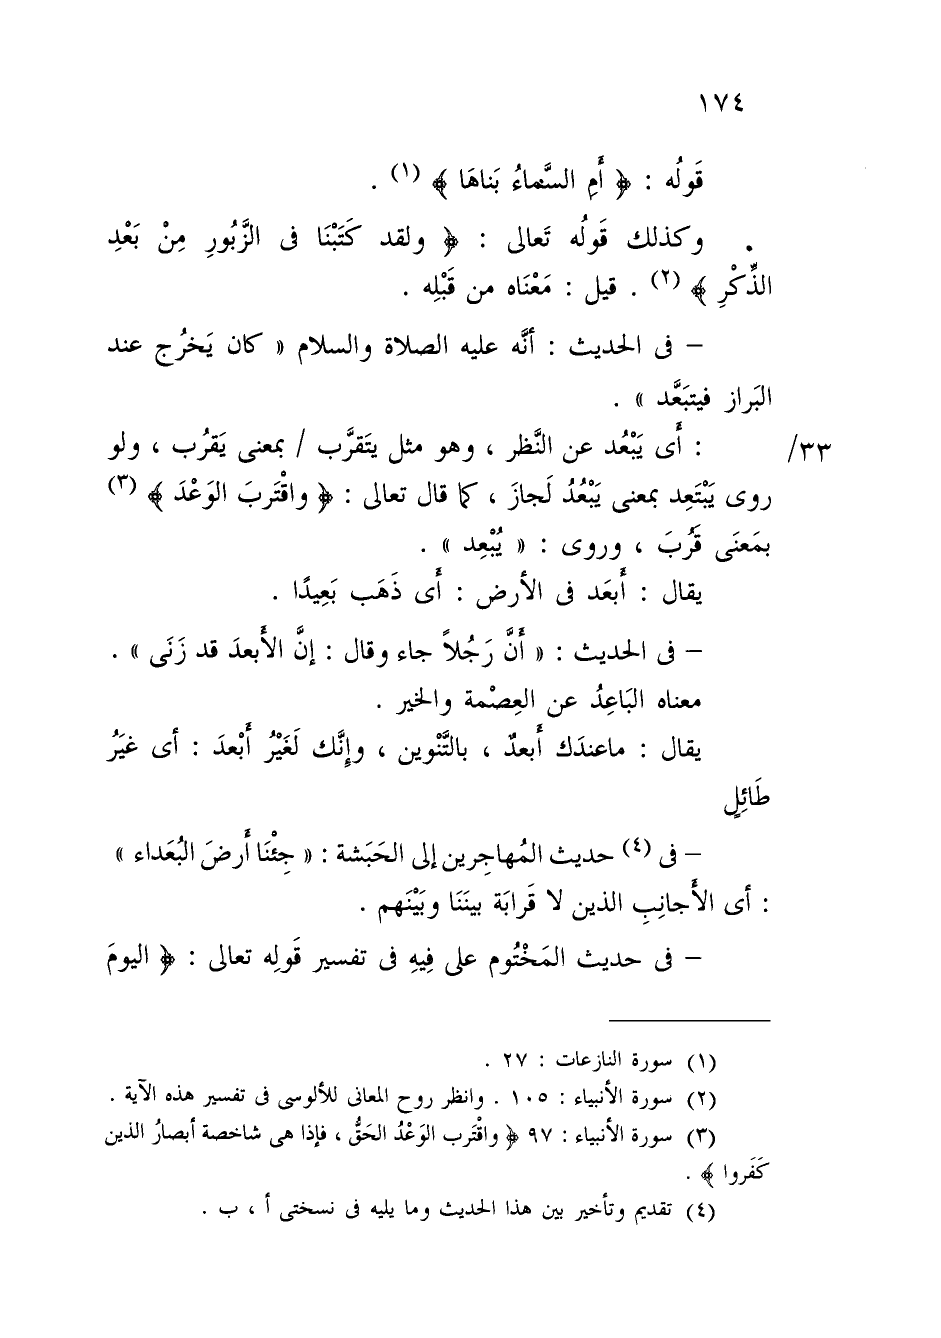 ١٧٤
قَولُه : ﴿ أَمِ السَّماءُ بَناهَا ﴾ (١) .
. وكذلك قَولُه تَعالى : ﴿ ولقد كَتَبْنَا فى الزَّبُورِ مِنْ بَعْدِ
الذِّكْرِ ﴾ (٢) . قيل : مَعْنَاه من قَبْلِه .
– فى الحديث : أنَّه عليه الصلاة والسلام « كان يَخرُج عند
البَراز فيتبَعَّد » .
/٣٣ : أَى يَبْعُد عن النَّظر ، وهو مثل يتَقرَّب / بمعنى يَقرُب ، ولو
روى يَبْتَعِد بمعنى يَبْعُدُ لَجازَ ، كما قال تعالى : ﴿ واقْتَربَ الوَعْدَ ﴾ (٣)
بمَعنَى قَرُبَ ، وروى : « يُبْعِد » .
يقال : أَبعَد فى الأرض : أَى ذَهَب بَعِيدًا .
– فى الحديث : « أَنَّ رَجُلاً جاء وقال : إنَّ الأَبعدَ قد زَنَى » .
معناه البَاعِدُ عن العِصْمة والخير .
يقال : ماعندَك أَبعدٌ ، بالتَّنْوين ، وإِنَّك لَغَيْرُ أَبْعدَ : أى غيَرُ
طَائِلٍ
– فى (٤) حديث المُهاجِرين إلى الحَبَشة : « جِئْنَا أَرضَ البُعَداء »
: أى الأَجانِبِ الذين لا قَرابَة بينَنَا وبَيْنَهم .
– فى حديث المَخْتُوم على فِيهِ فى تفسير قَولِه تعالى : ﴿ اليومَ
(١) سورة النازعات : ٢٧ .
(٢) سورة الأنبياء : ١٠٥ . وانظر روح المعانى للألوسى فى تفسير هذه الآية .
(٣) سورة الأنبياء : ٩٧ ﴿ واقْتَرب الوَعْدُ الحَقُّ ، فإذا هى شاخصة أبصارُ الذين
كَفَروا ﴾ .
(٤) تقديم وتأخير بين هذا الحديث وما يليه فى نسختى أ ، ب .